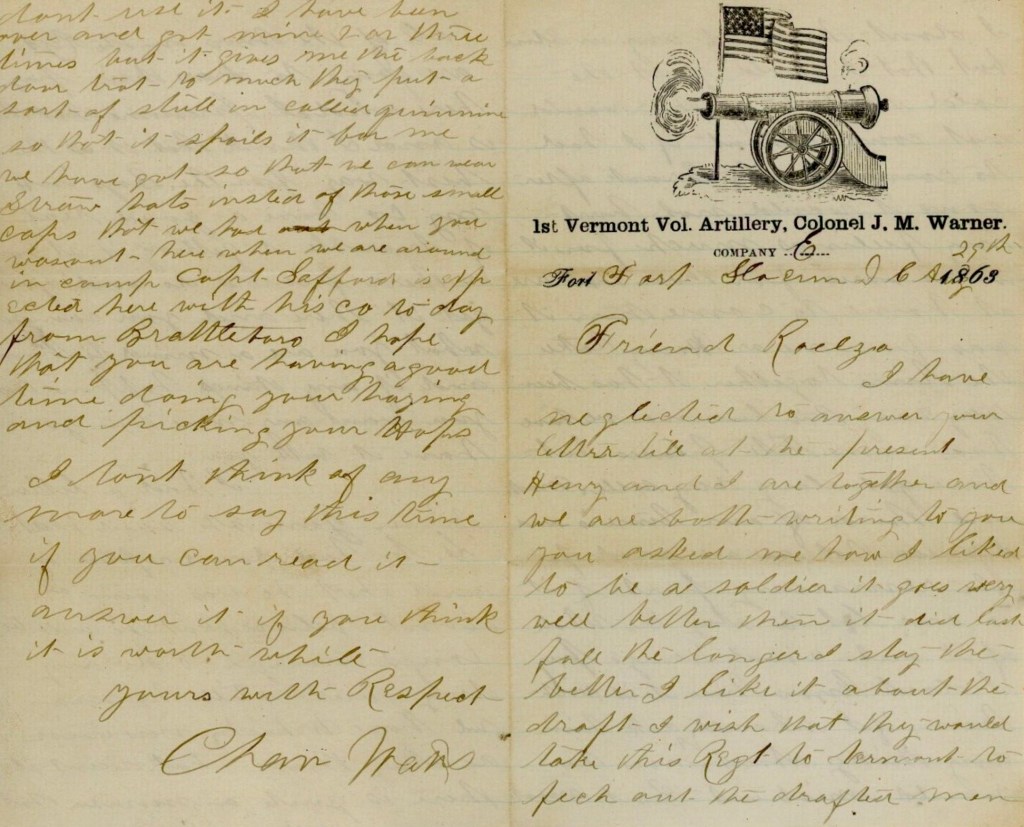 1st Vermont Vol. Artillery, Colonel J. M. Warner.
COMPANY E
Fort Fort Slocum D C Aug 29th 1863
Friend Roelza
I have
neglected to answer your
letter till at the present
Henry and I are together and
we are both writing to you
you asked me how I liked
to be a soldier it goes very
well better then it did last
fall the longer I stay the
better I like it about the
draft I wish that they would
take this Regt to Vermont to
fech out the drafted men
dont use it I have been
over and got mine 2 or three
times but it gives me the back
door trot to much they put a
sort of stuff in called quinnine
so that it spoils it for me
we have got so that we can wear
Straw hats insted of those small
caps that we had when you
was out here when we are around
in camp Capt Safford is exp
ected here with his co to day
from Brattleboro I hope
that you are having a good
time doing your haying
and picking your Hops
I dont think of any
more to say this time
if you can read it
answer it if you think
it is worth while
yours with Respect